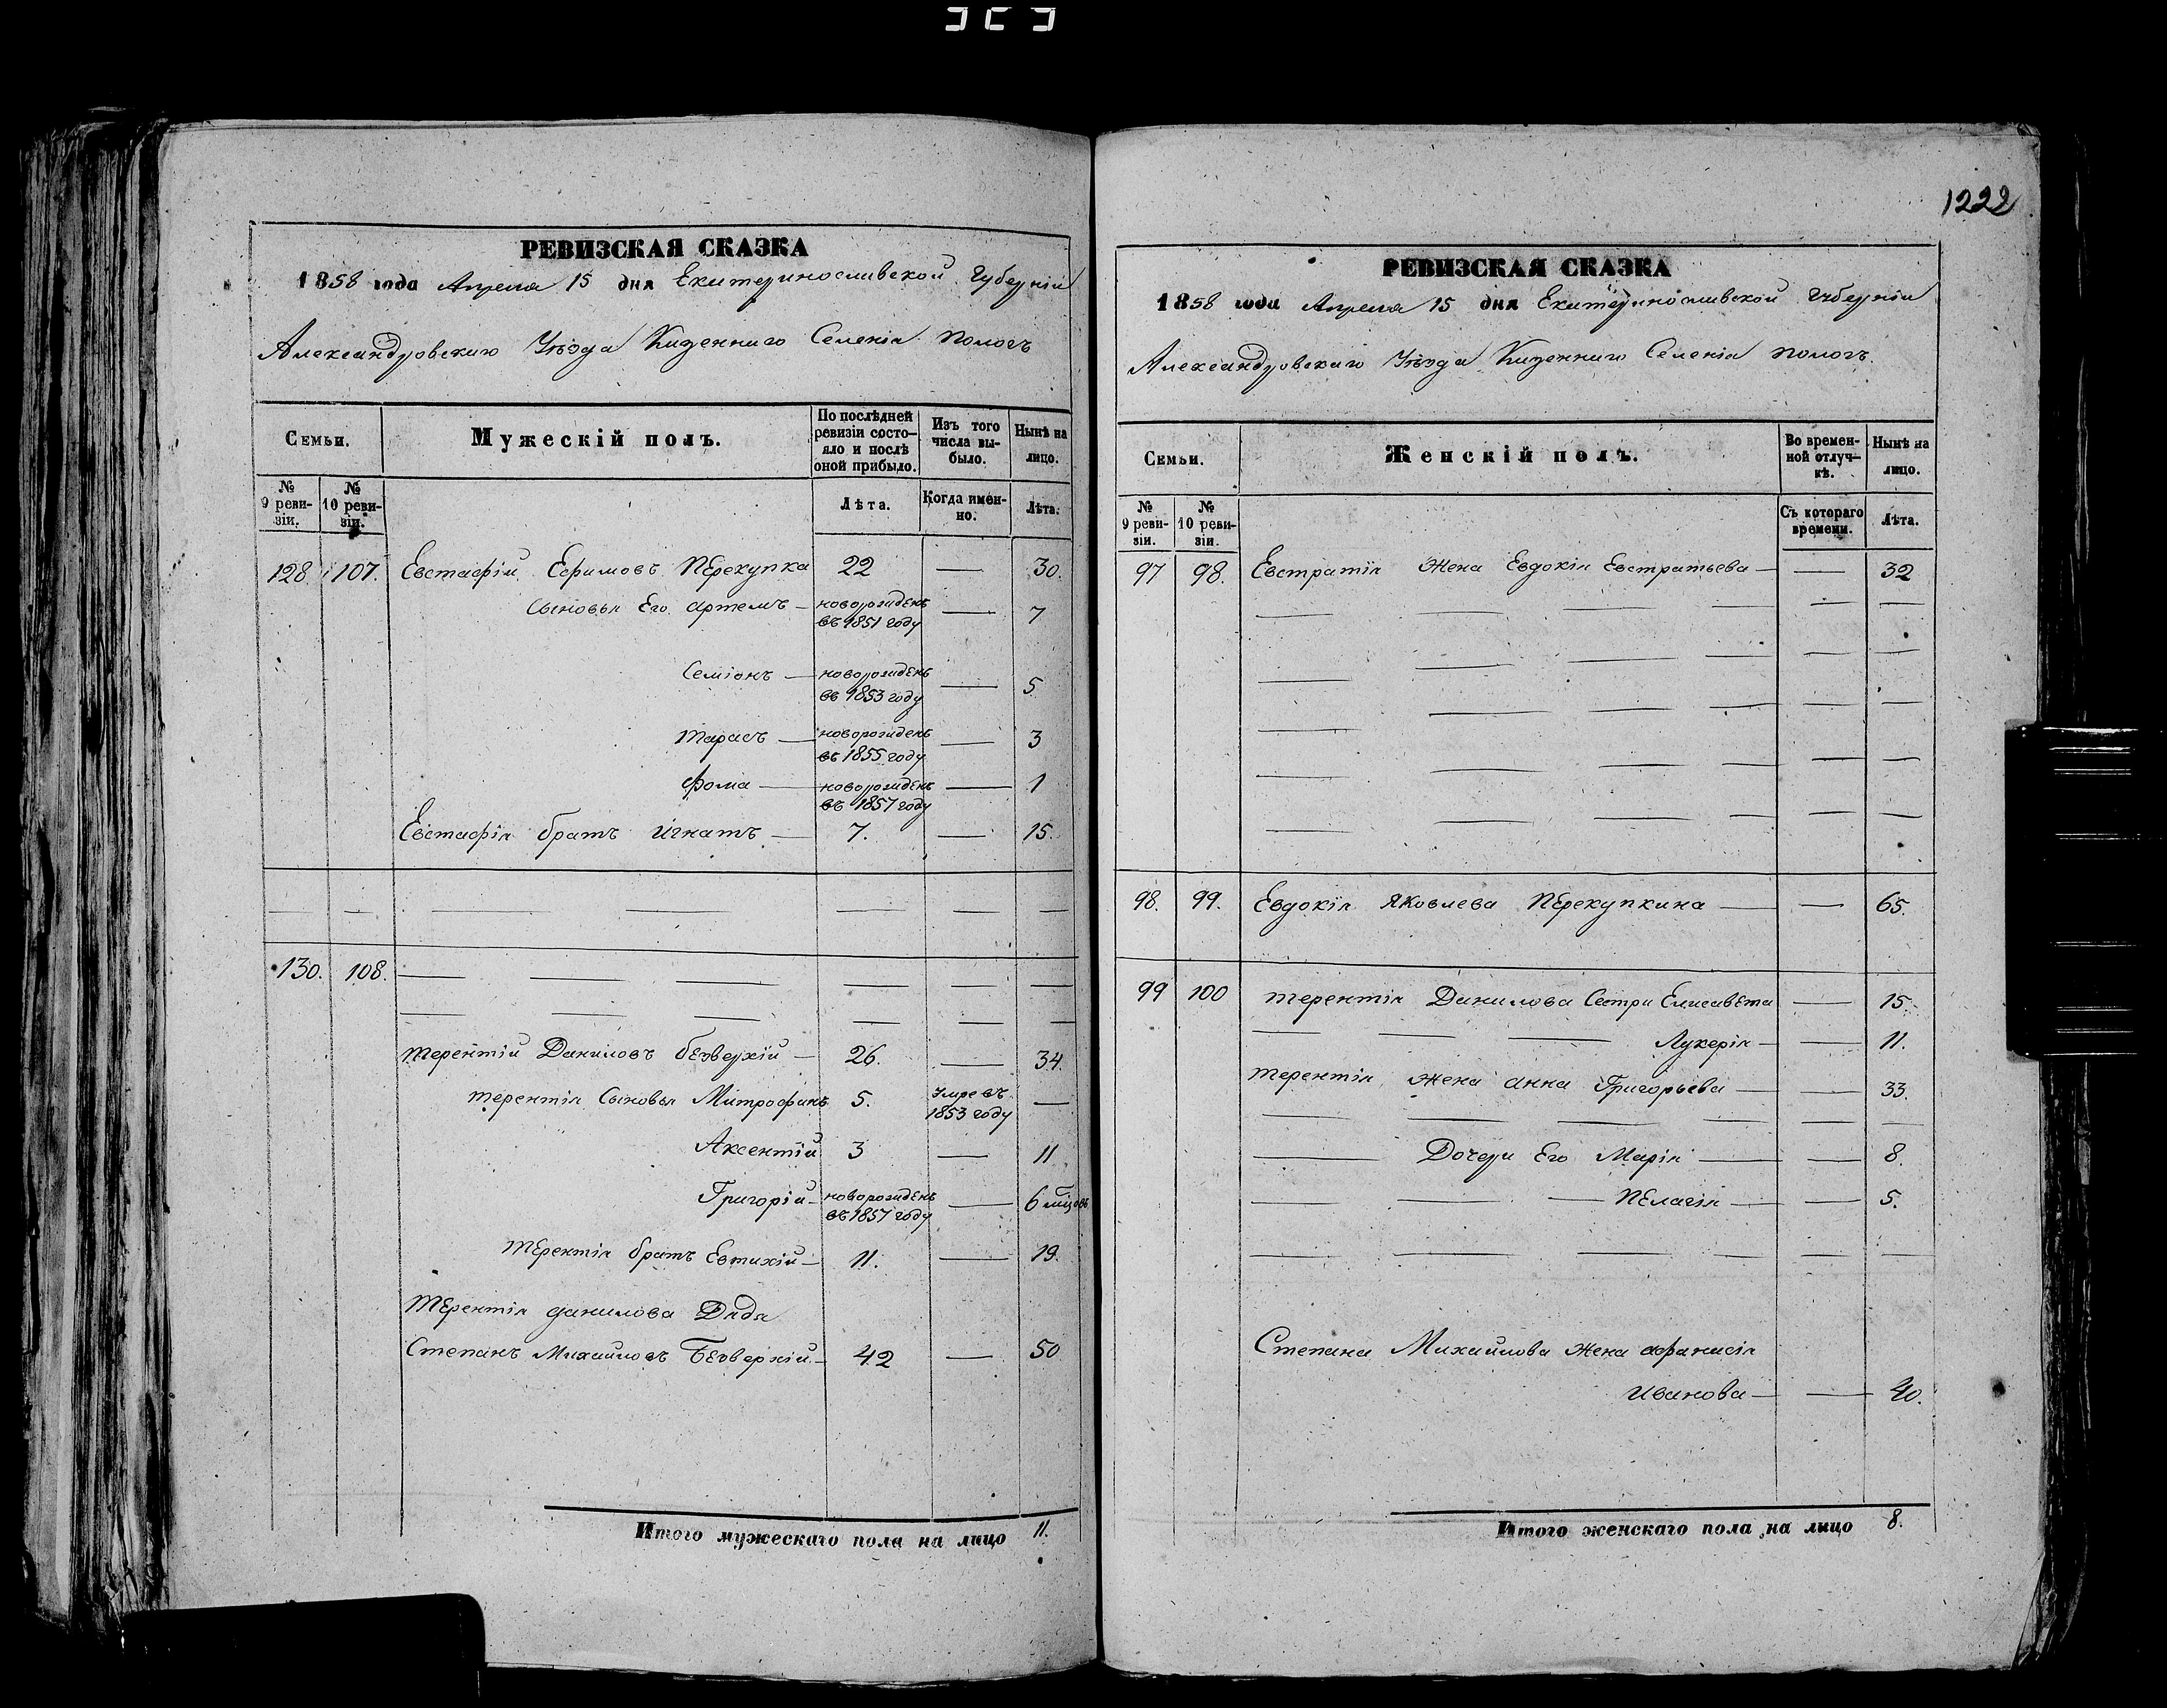 1222
РЕВИЗСКАЯ СКАЗКА
1858 года Апреля 15 дня Екатеринославской Губерніи
Александровскаго Уѣзда Казеннаго Селенія Пологъ
Семьи.
Мужескій полъ.
По послѣдней ревизіи состо-
яло и послѣ оной прибыло.
Изъ того числа вы-
было.
Нынѣ на лицо.
№ 9 реви-
зіи.
№ 10 реви-
зіи.
Лѣта.
Когда имен-
но.
Лѣта.
128. 107. Евстафій Ефимовъ Перекупка 22 — 30.
Сыновья Его Артемъ — новорожденъ въ 1851 году — 7
Семіонъ — новорожденъ въ 1853 году — 5
Тарасъ — новорожденъ въ 1855 году — 3
Фома — новорожденъ въ 1857 году — 1
Евстафія братъ Игнатъ — 7. — 15.
130. 108.
Терентій Даниловъ Безверхій — 26. — 34.
Терентія Сыновья Митрофанъ 5. Умре въ 1853 году —
Аксентій 3 — 11
Григорій — новорожденъ въ 1857 году — 6 мцовъ
Терентія братъ Евтихій — 11. — 19.
Терентія Данилова Дядя
Степанъ Михайловъ Безверхій — 42 — 50
Итого мужескаго пола на лицо 11.
РЕВИЗСКАЯ СКАЗКА
1858 года Апреля 15 дня Екатеринославской Губерніи
Александровскаго Уѣзда Казеннаго Селенія Пологъ.
Семьи.
Женскій полъ.
Во времен-
ной отлуч-
кѣ.
Нынѣ на лицо.
№ 9 реви-
зіи.
№ 10 реви-
зіи.
Съ котораго времени.
Лѣта.
97 98. Евстратія Жена Евдокія Евстратьева — — 32
98. 99. Евдокія Яковлева Перекупкина — — 65.
99 100 Терентія Данилова Сестри Елисавета — 15.
Лукерія — — 11.
Терентія Жена Анна Григорьева — — 33.
Дочери Его Марія — — 8.
Пелагія — — 5.
Степана Михайлова Жена Афанасія
Иванова — — 40.
Итого женскаго пола на лицо 8.